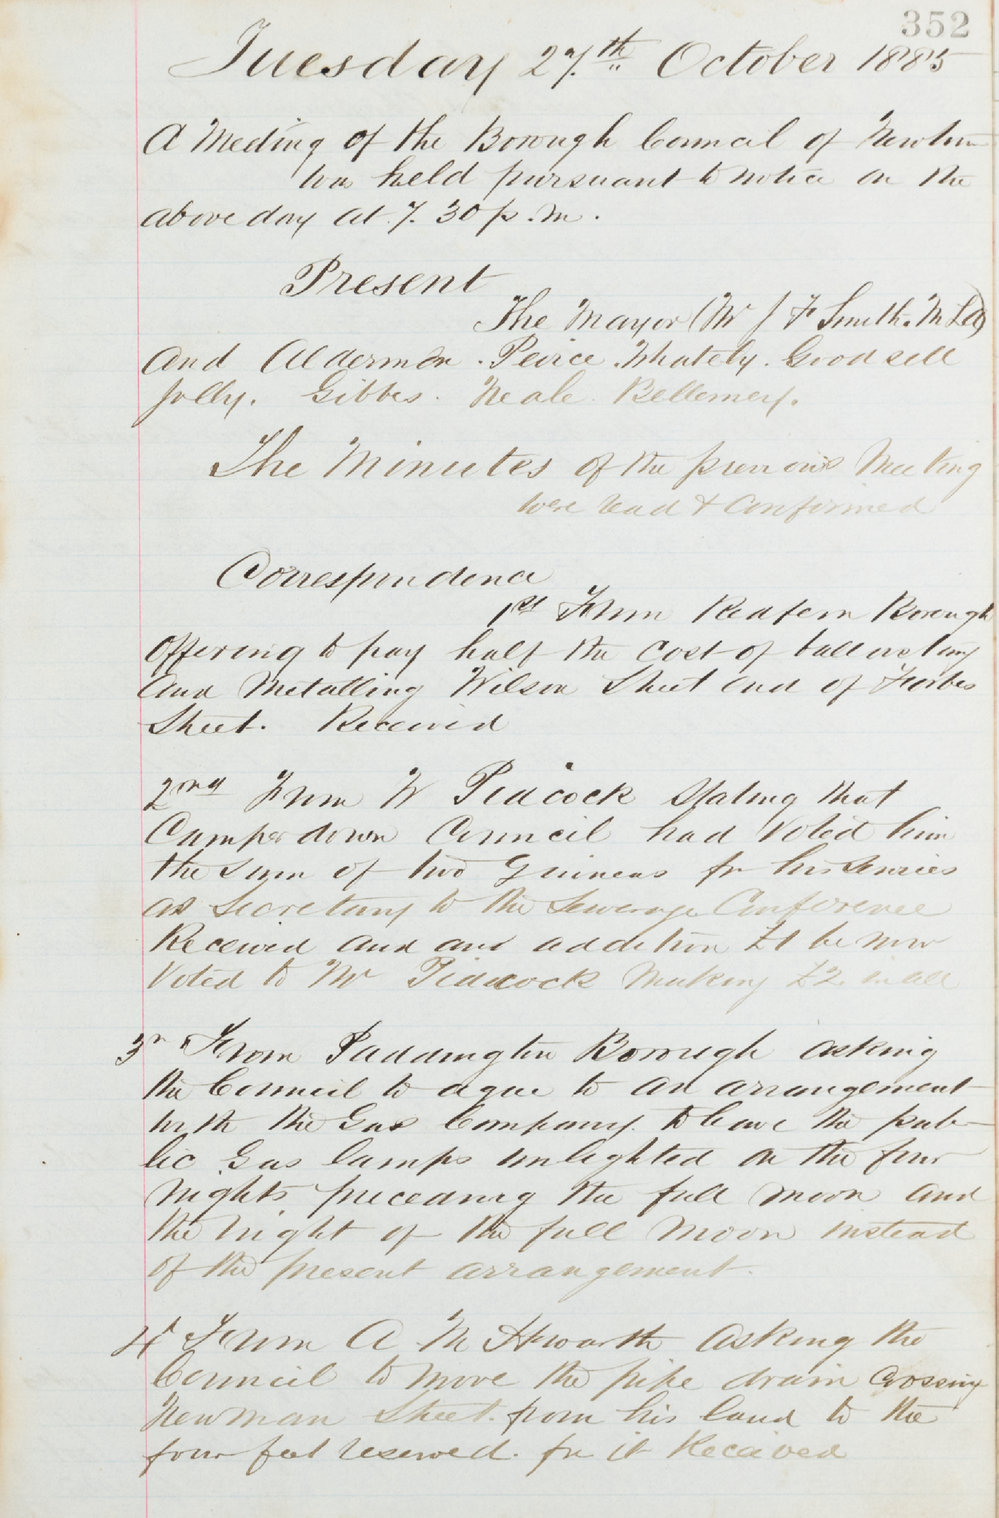 352
Tuesday 27th October 1885
A Meeting of the Borough Council of Newtown
was held pursuant to notice on the
above day at 7.30 p.m.
Present
The Mayor (Mr J F Smith. M L A)
and Aldermen. Peirce. Whately. Goodsell
Jolly. Gibbes. Neale. Bellemey.
The Minutes of the previous Meeting
were read & Confirmed
Correspondence
1st From Redfern Borough
offering to pay half the cost of ballasting
and Metalling Wilson Street end of Forbes
Street. Received
2nd From W Peacock stating that
Camperdown Council had voted him
the sum of two Guineas for his services
as Secretary to the Sewerage Conference
Received and an addition £1 be now
voted to Mr Peacock making £2. in all
3r From Paddington Borough asking
the Council to agree to an arrangement
with the Gas Company. to leave the pub-
lic Gas lamps unlighted on the four
nights preceding the full moon and
the night of the full moon instead
of the present arrangement.
4 From A M Howarth asking the
Council to move the pipe drain crossing
Newman Street. from his land to the
four feet reserved. for it Received